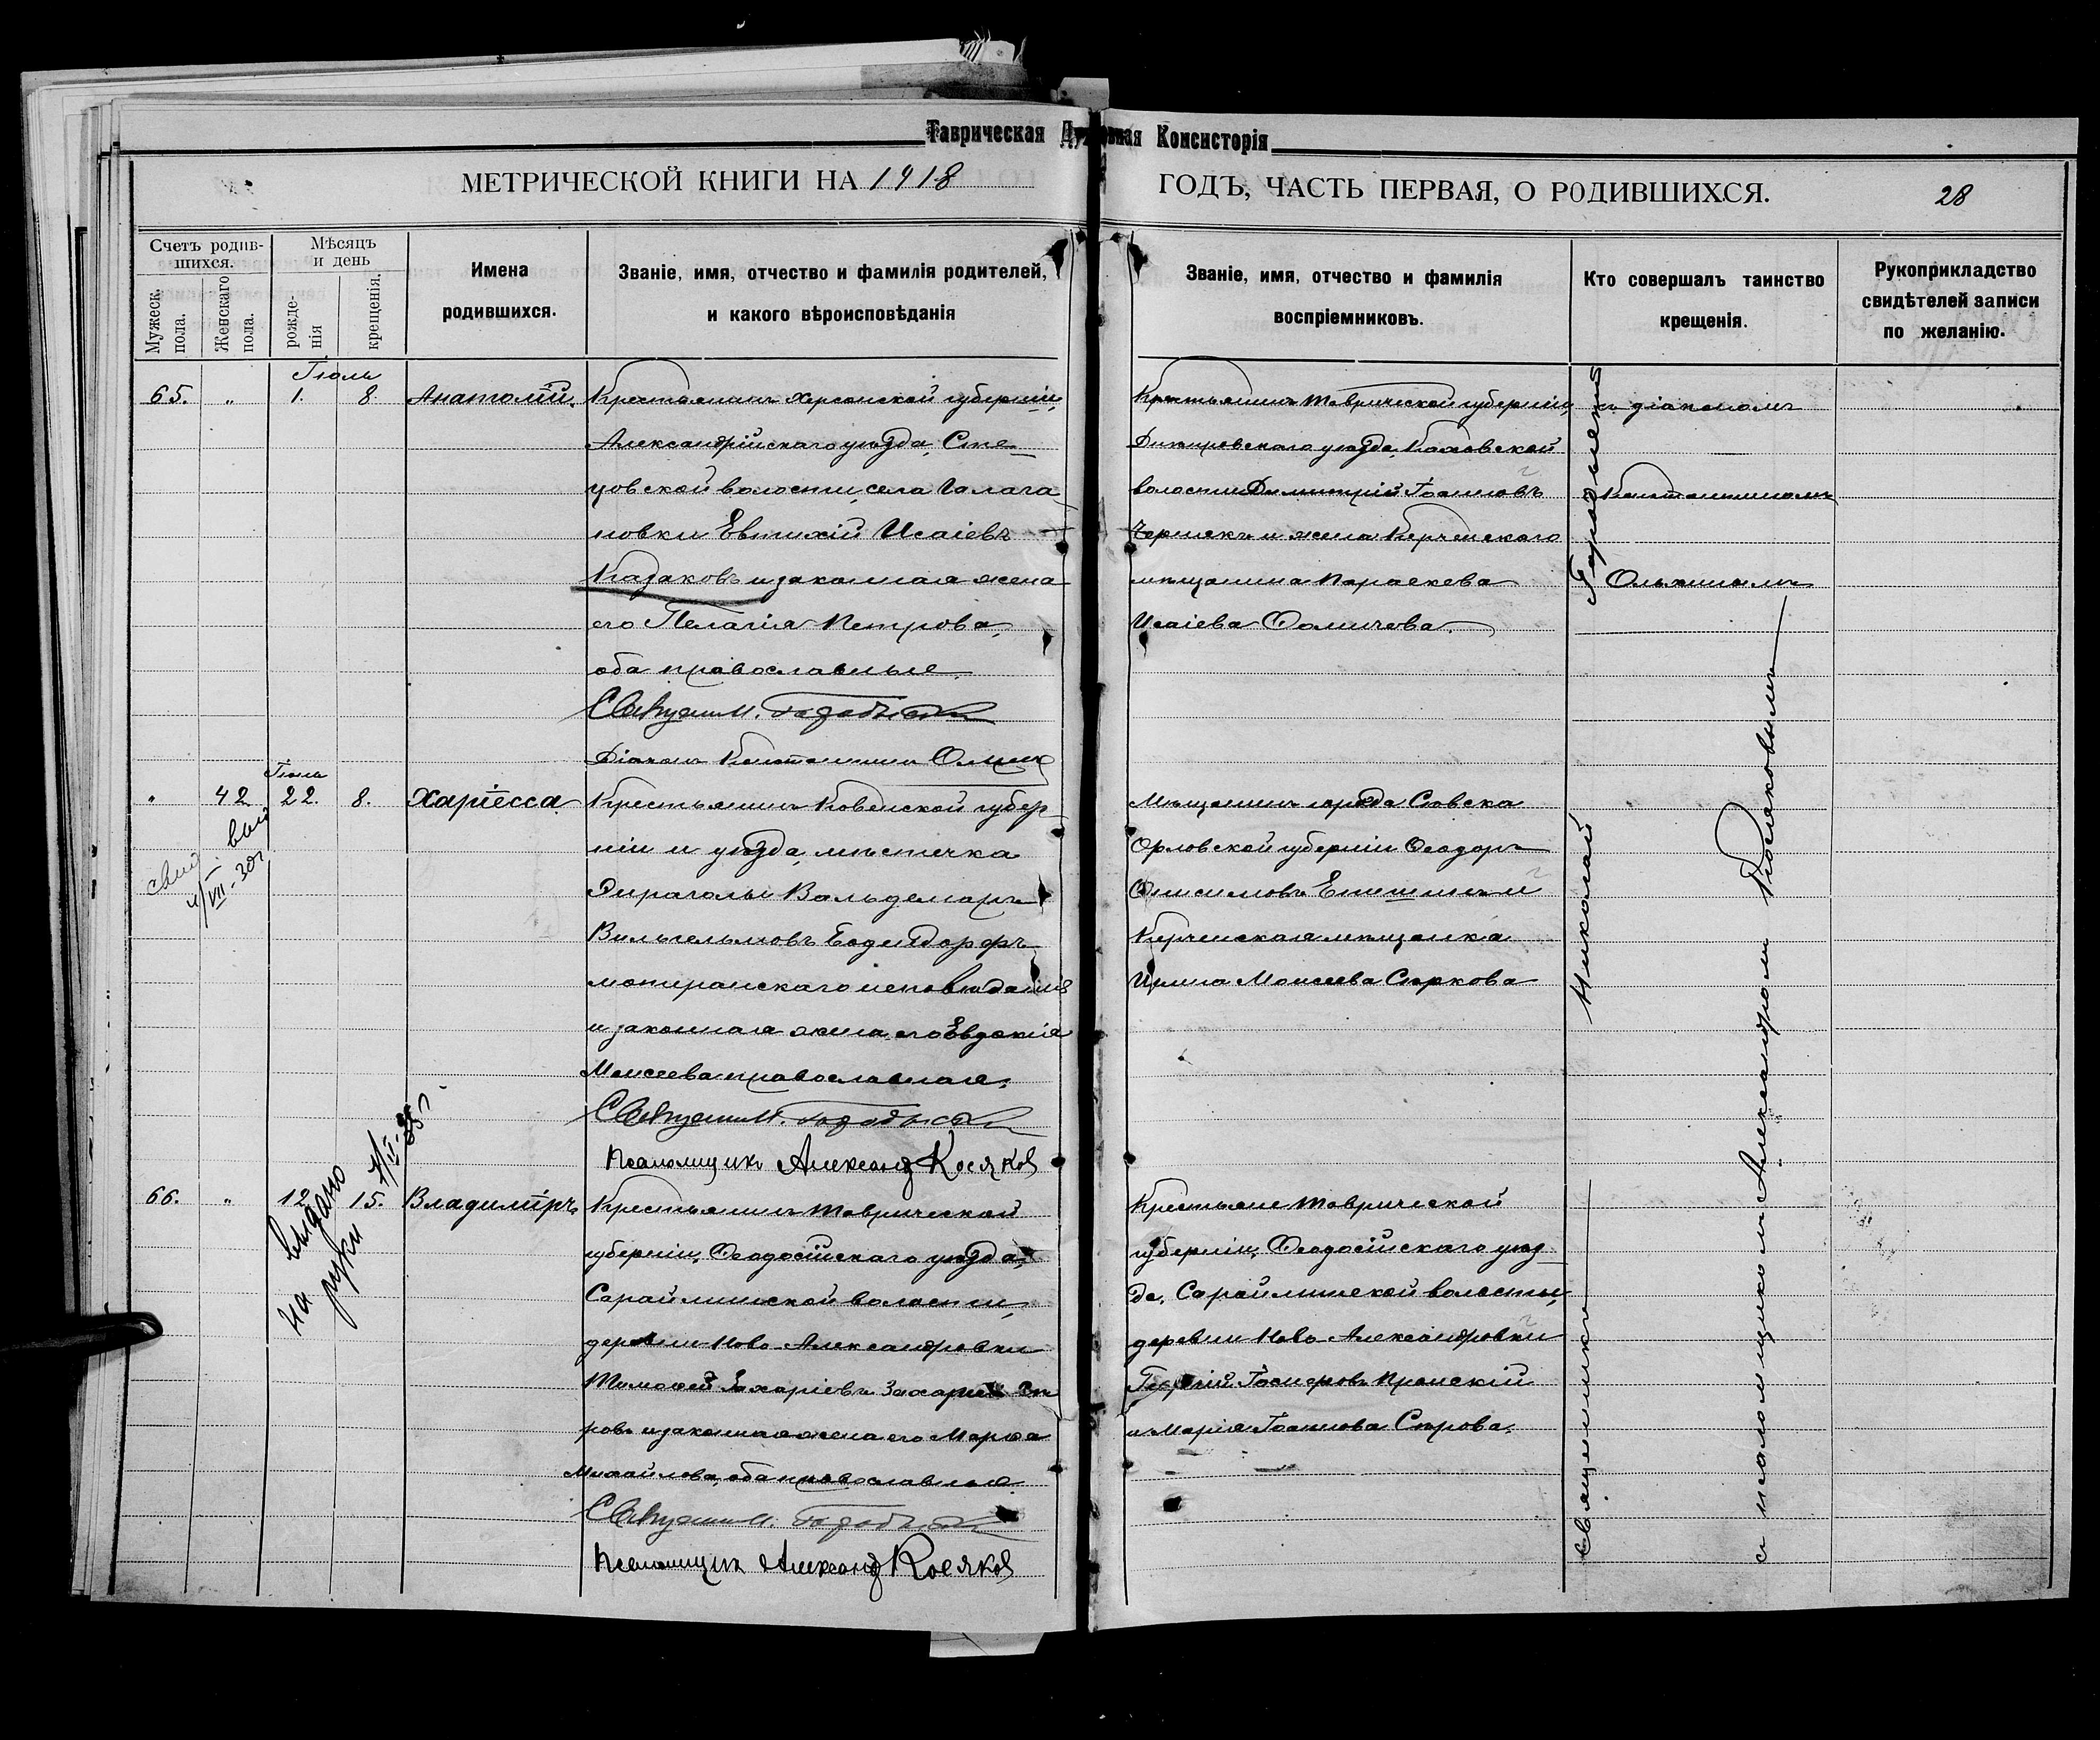 Таврическая Духовная Консисторія
МЕТРИЧЕСКОЙ КНИГИ НА 1918 ГОДЪ, ЧАСТЬ ПЕРВАЯ, О РОДИВШИХСЯ.
28
Счетъ родив-
шихся.
Мужеск. пола.
Женскаго пола.
Мѣсяцъ
и день
рожде-
нія
крещенія.
Имена
родившихся.
Званіе, имя, отчество и фамилія родителей,
и какого вѣроисповѣданія
Званіе, имя, отчество и фамилія
воспріемниковъ.
Кто совершалъ таинство
крещенія.
Рукоприкладство
свидѣтелей записи
по желанію.
Іюль
65. " 1. 8. Анатолій.
Крестьянинъ Херсонской губерніи,
Александрійскаго уѣзда,
цовской волости, села
новки Евтихій Исаіевъ
Казаковъ и законная жена
его Пелагія Петрова,
оба православные.
Священ.
Діаконъ Константинъ
Крестьянинъ Таврической губерніи,
Днѣпровскаго уѣзда, Каховской
волости Димитрій Іоанновъ
Чернякъ и жена Керченскаго
мѣщанина Параскева
Исаіева Фомичева.
Іюнь
" 42 22. 8. Харіесса.
свид. выд.
VII - 30г
Крестьянинъ Ковенской губер-
ніи и уѣзда, мѣстечка
Эйраголы Вальдемаръ
Вильгельмовъ
лютеранскаго исповѣданія
и законная жена его Евдокія
Моисеева православная.
Священ.
Псаломщикъ Александ Косяков
Мѣщанинъ города Сѣвска
Орловской губерніи Ѳеодоръ
Онисимовъ и
Керченская мѣщанка
Ирина Моисеева
66. " 12 15. Владиміръ.
выдано
на руки
Крестьянинъ Таврической
губерніи, Ѳеодосійскаго уѣзда,
Сарайминской волости,
деревни Ново-Александровки
Тимофей Захаріевъ
ровъ и законная жена его Марѳа
Михайлова, оба православные.
Священ.
Псаломщик Александ Косяков
Крестьяне Таврической
губерніи, Ѳеодосійскаго уѣз-
да, Сарайминской волости,
деревни Ново-Александровки
Георгій
и Марія Іоаннова Сѣрова.
Священникъ Николай
съ діакономъ
Константиномъ
и псаломщикомъ Александромъ Косяковымъ